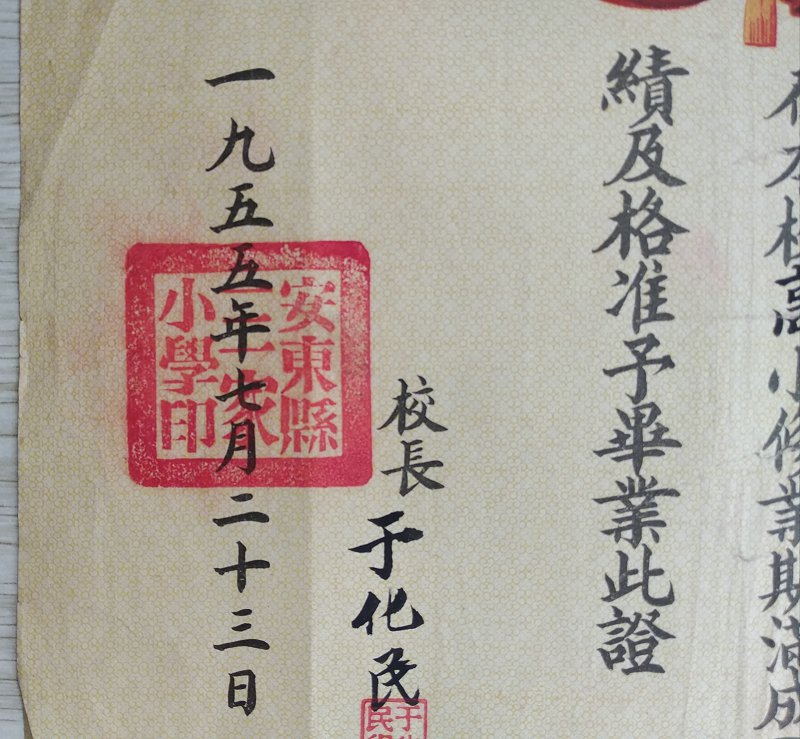 在本校高小修業期滿成
績及格准予畢業此證
校長
于化民
一九五五年七月二十三日
安東縣
家
小學印
于
民